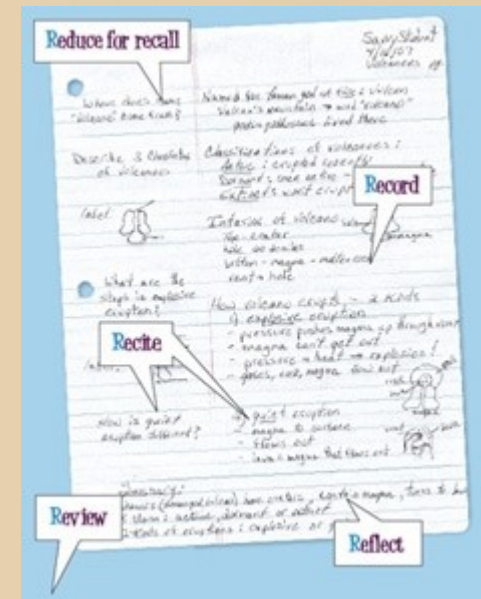 Reduce for recall
Volcanoes pg.
Where does name
"Volcano" come from?
Named for Roman god of fire : Vulcan
Vulcan's mountain → word "volcano"
lived there
Describe 3
of volcanoes
Classifications of volcanoes :
Active : erupted recently
Dormant : once active -
Extinct : won't erupt
Record
label
Interior of volcano
Top - crater
magma
bottom - magma - molten rock
vent = hole
What are the
steps in explosive
eruption?
How volcano erupts - 2 kinds
1) explosive eruption
- pressure pushes magma up through vent
Recite
- magma can't get out
- pressure + heat → explosion!
- gases, rock, magma blow out
How is quiet
eruption different?
2) quiet eruption
- magma to surface
- flows out
- lava = magma that flows out
Summary:
have craters,
active, dormant or extinct
kinds of eruptions : explosive or
Review
Reflect